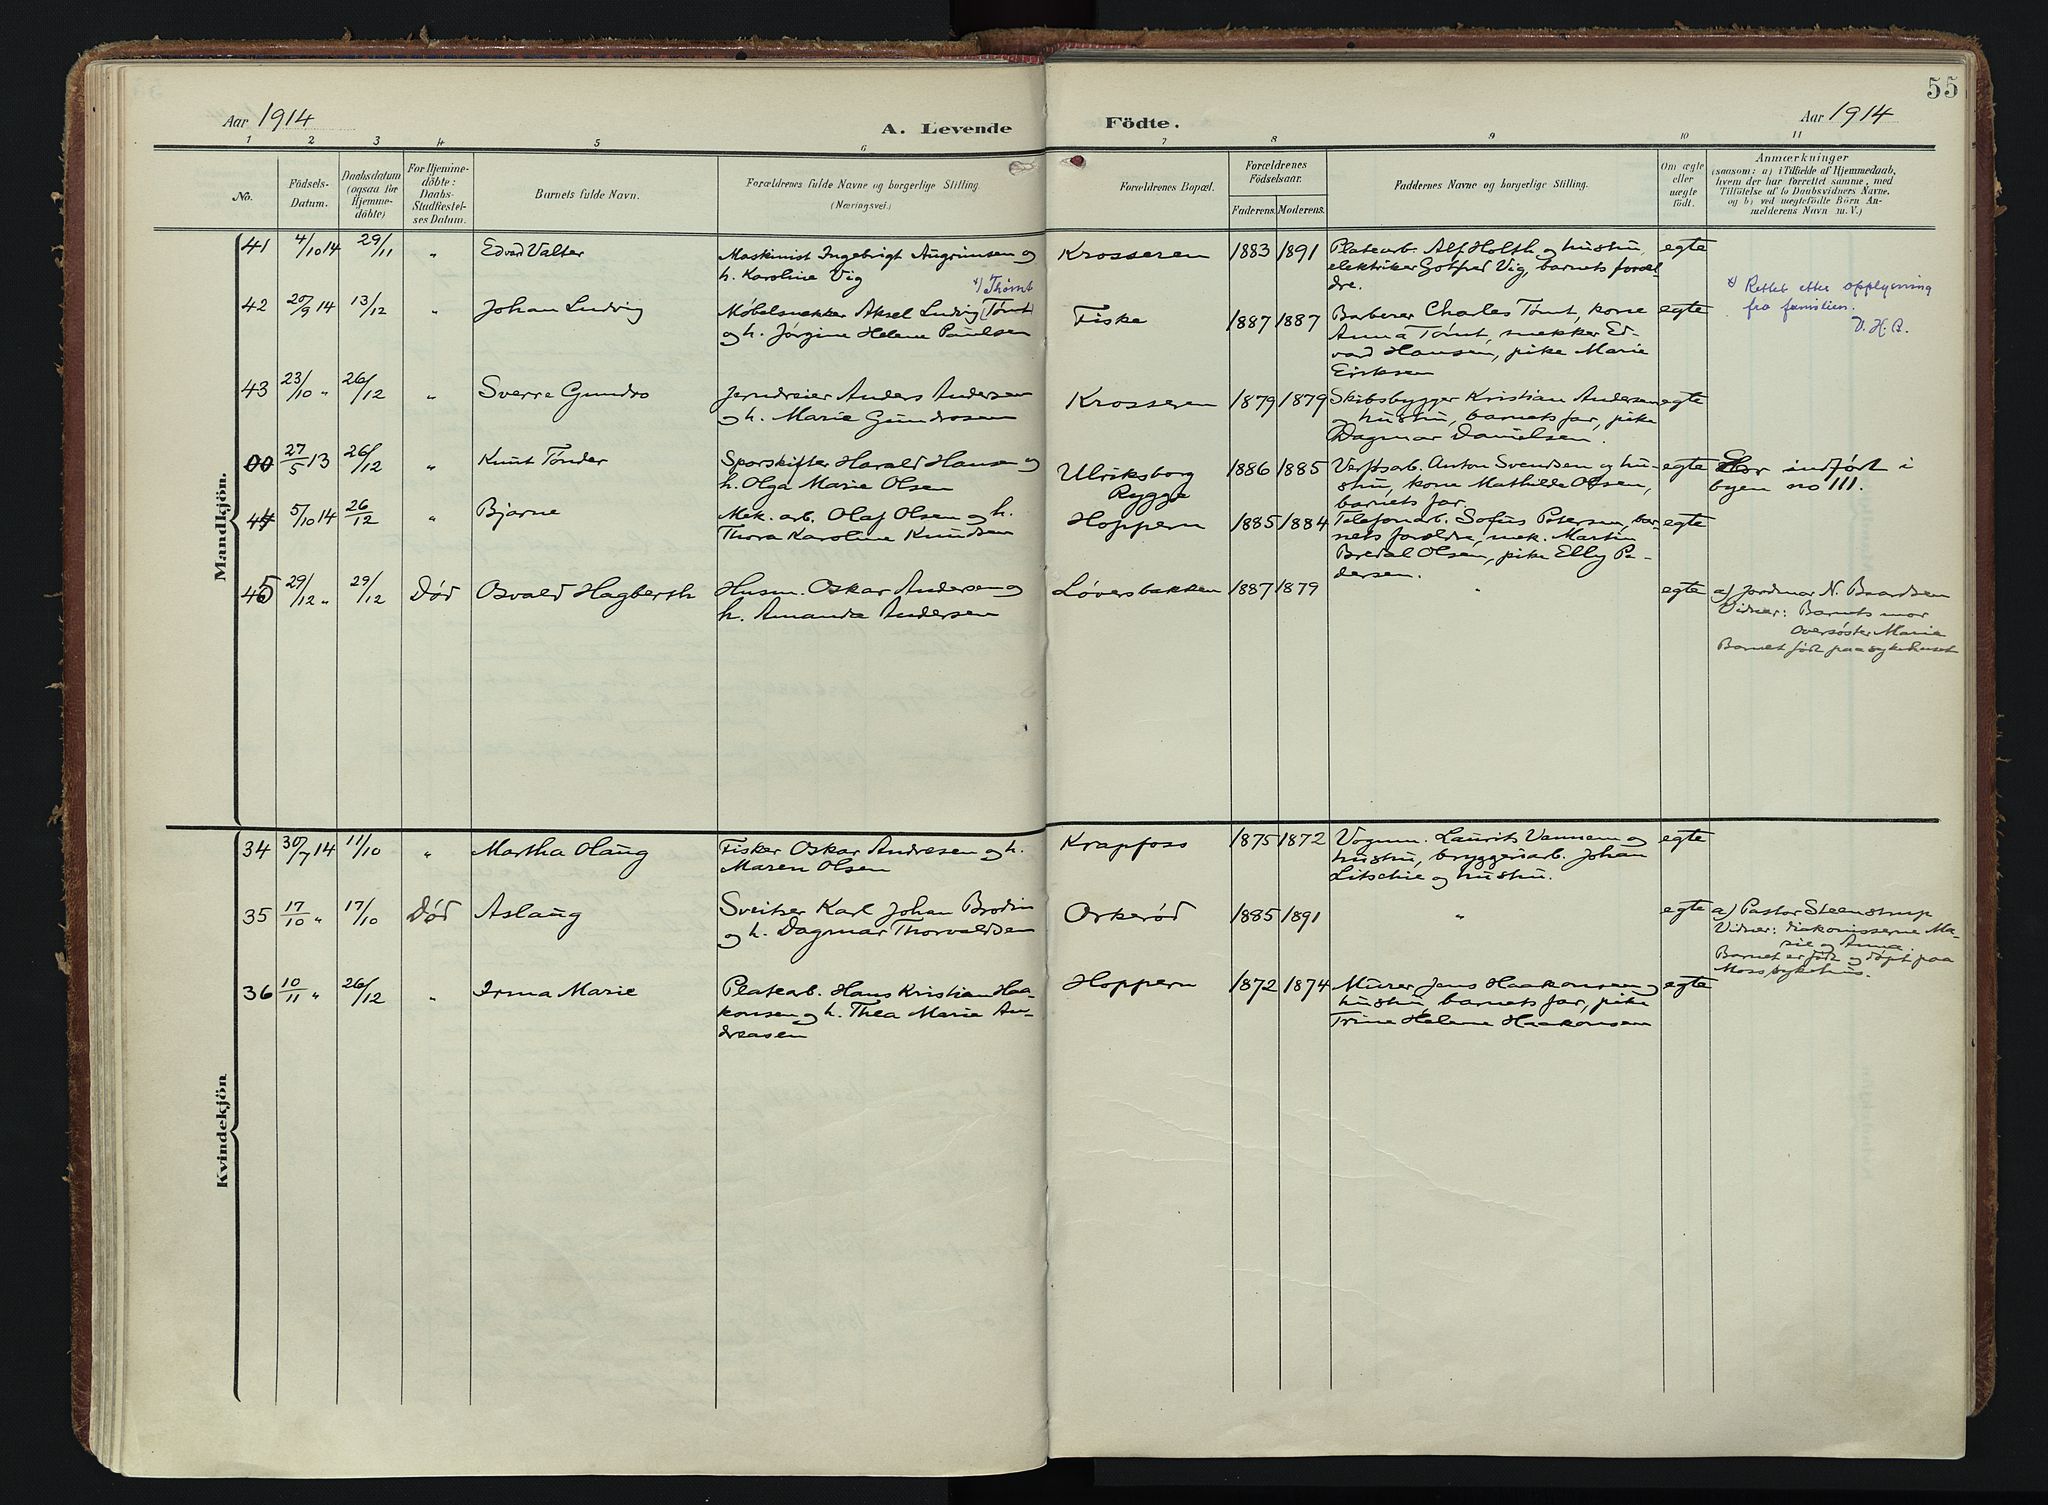 55
Aar 1914
A. Levende Födte.
Aar 1914
1 2 3 4 5 6 7 8 9 10 11
No.
Födsels-Datum.
Daabsdatum (ogsaa for Hjemme-döbte)
For Hjemme-döbte: Daabs-Stadfæstel-ses Datum.
Barnets fulde Navn.
Forældrenes fulde Navne og borgerlige Stilling.
(Næringsvei.)
Forældrenes Bopæl.
Forældrenes Födselsaar.
Faderens. Moderens.
Faddernes Navne og borgerlige Stilling.
Om ægte eller uægte födt.
Anmærkninger
(saasom: a) i Tilfælde af Hjemmedaab,
hvem der har forrettet samme, med
Tilföielse af to Daabsvidners Navne,
og b) ved uægtefödte Börn An-
melderens Navn m. V.)
Mandkjön.
41 4/10 14 29/11 " Edvard Valter
Maskinist Ingebrigt Augrimsen og
h. Karoline Vig
Krosseren 1883 1891
Platearb. Alf Holth og hustru,
elektriker Gotfred Vig, barnets foræl-
dre.
egte
42 20/9 14 13/12 " Johan Ludvig
x) Thømt
Møbelsnekker Aksel Ludvig Tømt
og h. Jørgine Helene Paulsen
Fiske 1887 1887
Barberer Charles Tømt, kone
Anna Tømt, snekker Ed-
vard Hansen, pike Marie
Eriksen
egte
x) Rettet etter opplysning
fra familien.
43 23/10 " 26/12 " Sverre Gundro
Jerndreier Anders Andersen
og h. Marie Gundrosen
Krosseren 1879 1879
Skibsbygger Kristian Andersen
og hustru, barnets far, pike
Dagmar Danielsen.
egte
00 27/5 13 26/12 " Knut Tønder
Sporskifter Harald Hansen og
h. Olga Marie Olsen
Ulriksborg
Rygge
1886 1885
Verftsarb. Anton Svendsen og hu-
stru, kone Mathilde Olsen,
barnets far.
egte
indført i
byen no 111.
44 5/10 14 26/12 " Bjarne
Mek. arb. Olaf Olsen og h.
Thora Karoline Knudsen
Hoppern 1885 1884
Telefonarb. Sofus Petersen, bar-
nets forældre, mek. Martin
Bredal Olsen, pike Elly Pe-
dersen.
egte
45 29/12 " 29/12 Død Osvald Hagberth
Husm. Oskar Andersen og
h. Amanda Andersen
Løversbakken 1887 1879 "
egte
a) Jordmor N. Baardsen
Vidner: Barnets mor
Oversøster Marie
Barnet født paa sykehuset
Kvindekjön
34 30/7 14 11/10 " Martha Olaug
Fisker Oskar Andresen og h.
Maren Olsen
Krapfoss 1875 1872
Vognm. Laurits Vannem og
hustru, bryggeriarb. Johan
Litschie og hustru.
egte
35 17/10 " 17/10 Død Aslaug
Sveitser Karl Johan Brodin
og h. Dagmar Thorvaldsen
Orkerød 1885 1891 "
egte
a) Pastor Steenstrup
Vidner: diakonisserne Ma-
rie og Anna.
Barnet er født og døpt paa
Moss sykehus.
36 10/11 " 26/12 " Irma Marie
Platearb. Hans Kristian Haa-
konsen og h. Thea Marie An-
dreasen
Hoppern 1872 1874
Murer Jens Haakonsen og
hustru, barnets far, pike
Trine Helene Haakonsen
egte